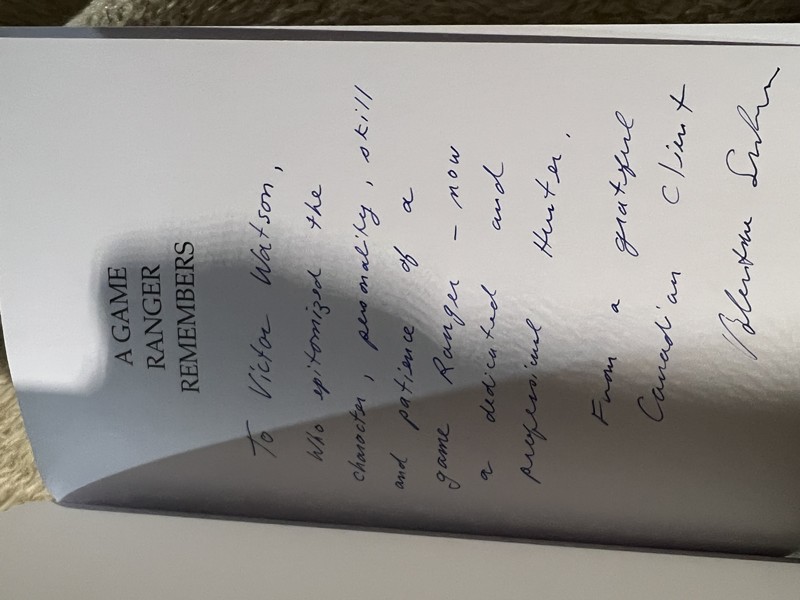 A GAME
RANGER
REMEMBERS
To Victor Watson,
Who epitomized the
character, personality, skill
and patience of a
game Ranger - now
a dedicated and
professional Hunter.
From a grateful
Canadian Client